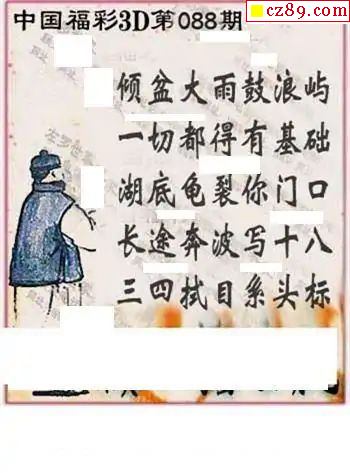 cz89.com
中国福彩3D第088期
倾盆大雨鼓浪屿
一切都得有基础
湖底龟裂你门口
长途奔波写十八
三四拭目系头标